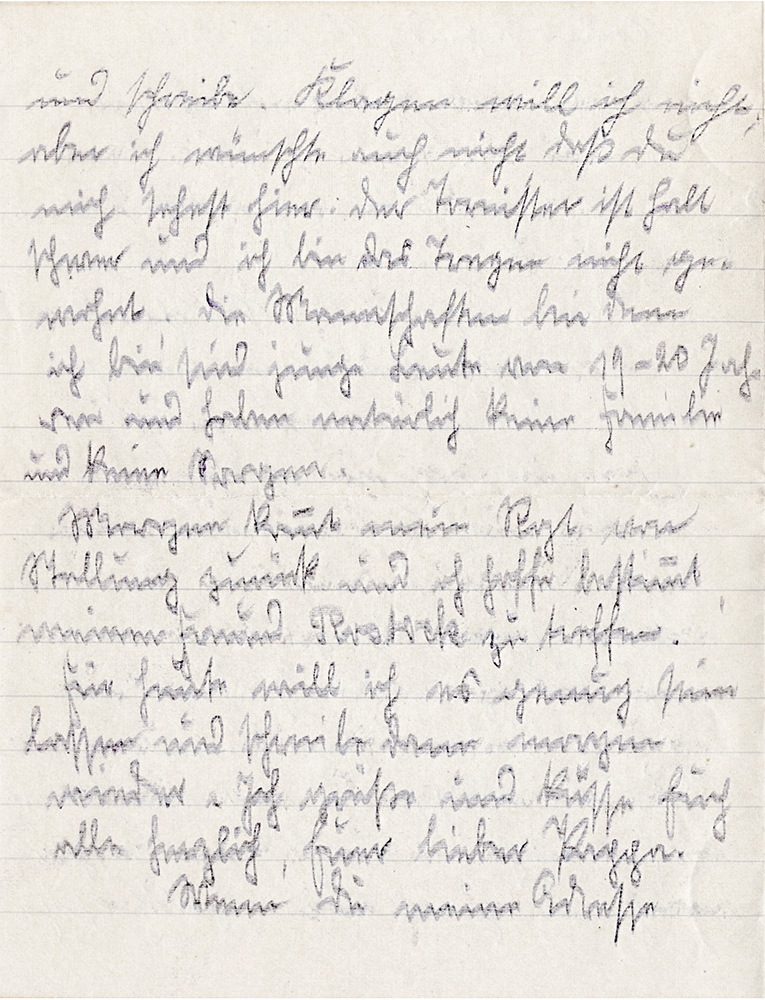 und schreibe. Klagen will ich nicht,
aber ich wünschte auch nicht daß du
mich sehest hier. Der Tornister ist halt
schwer und ich bin das Tragen nicht ge-
wohnt. Die Mannschaften bei denen
ich bin sind junge Leute von 19-20 Jah-
ren und haben natürlich keine Familie
und keine Sorgen.
Morgen kom̅t mein Rgt. von
Stellung zurück und ich hoffe bestim̅t
meinen Freund Rostock zu treffen.
Für heute will ich es genug sein
lassen und schreibe dann morgen
wieder. Ich grüße und küsse Euch
alle herzlich, Euer lieber Pappa.
Wenn du meine Adresse